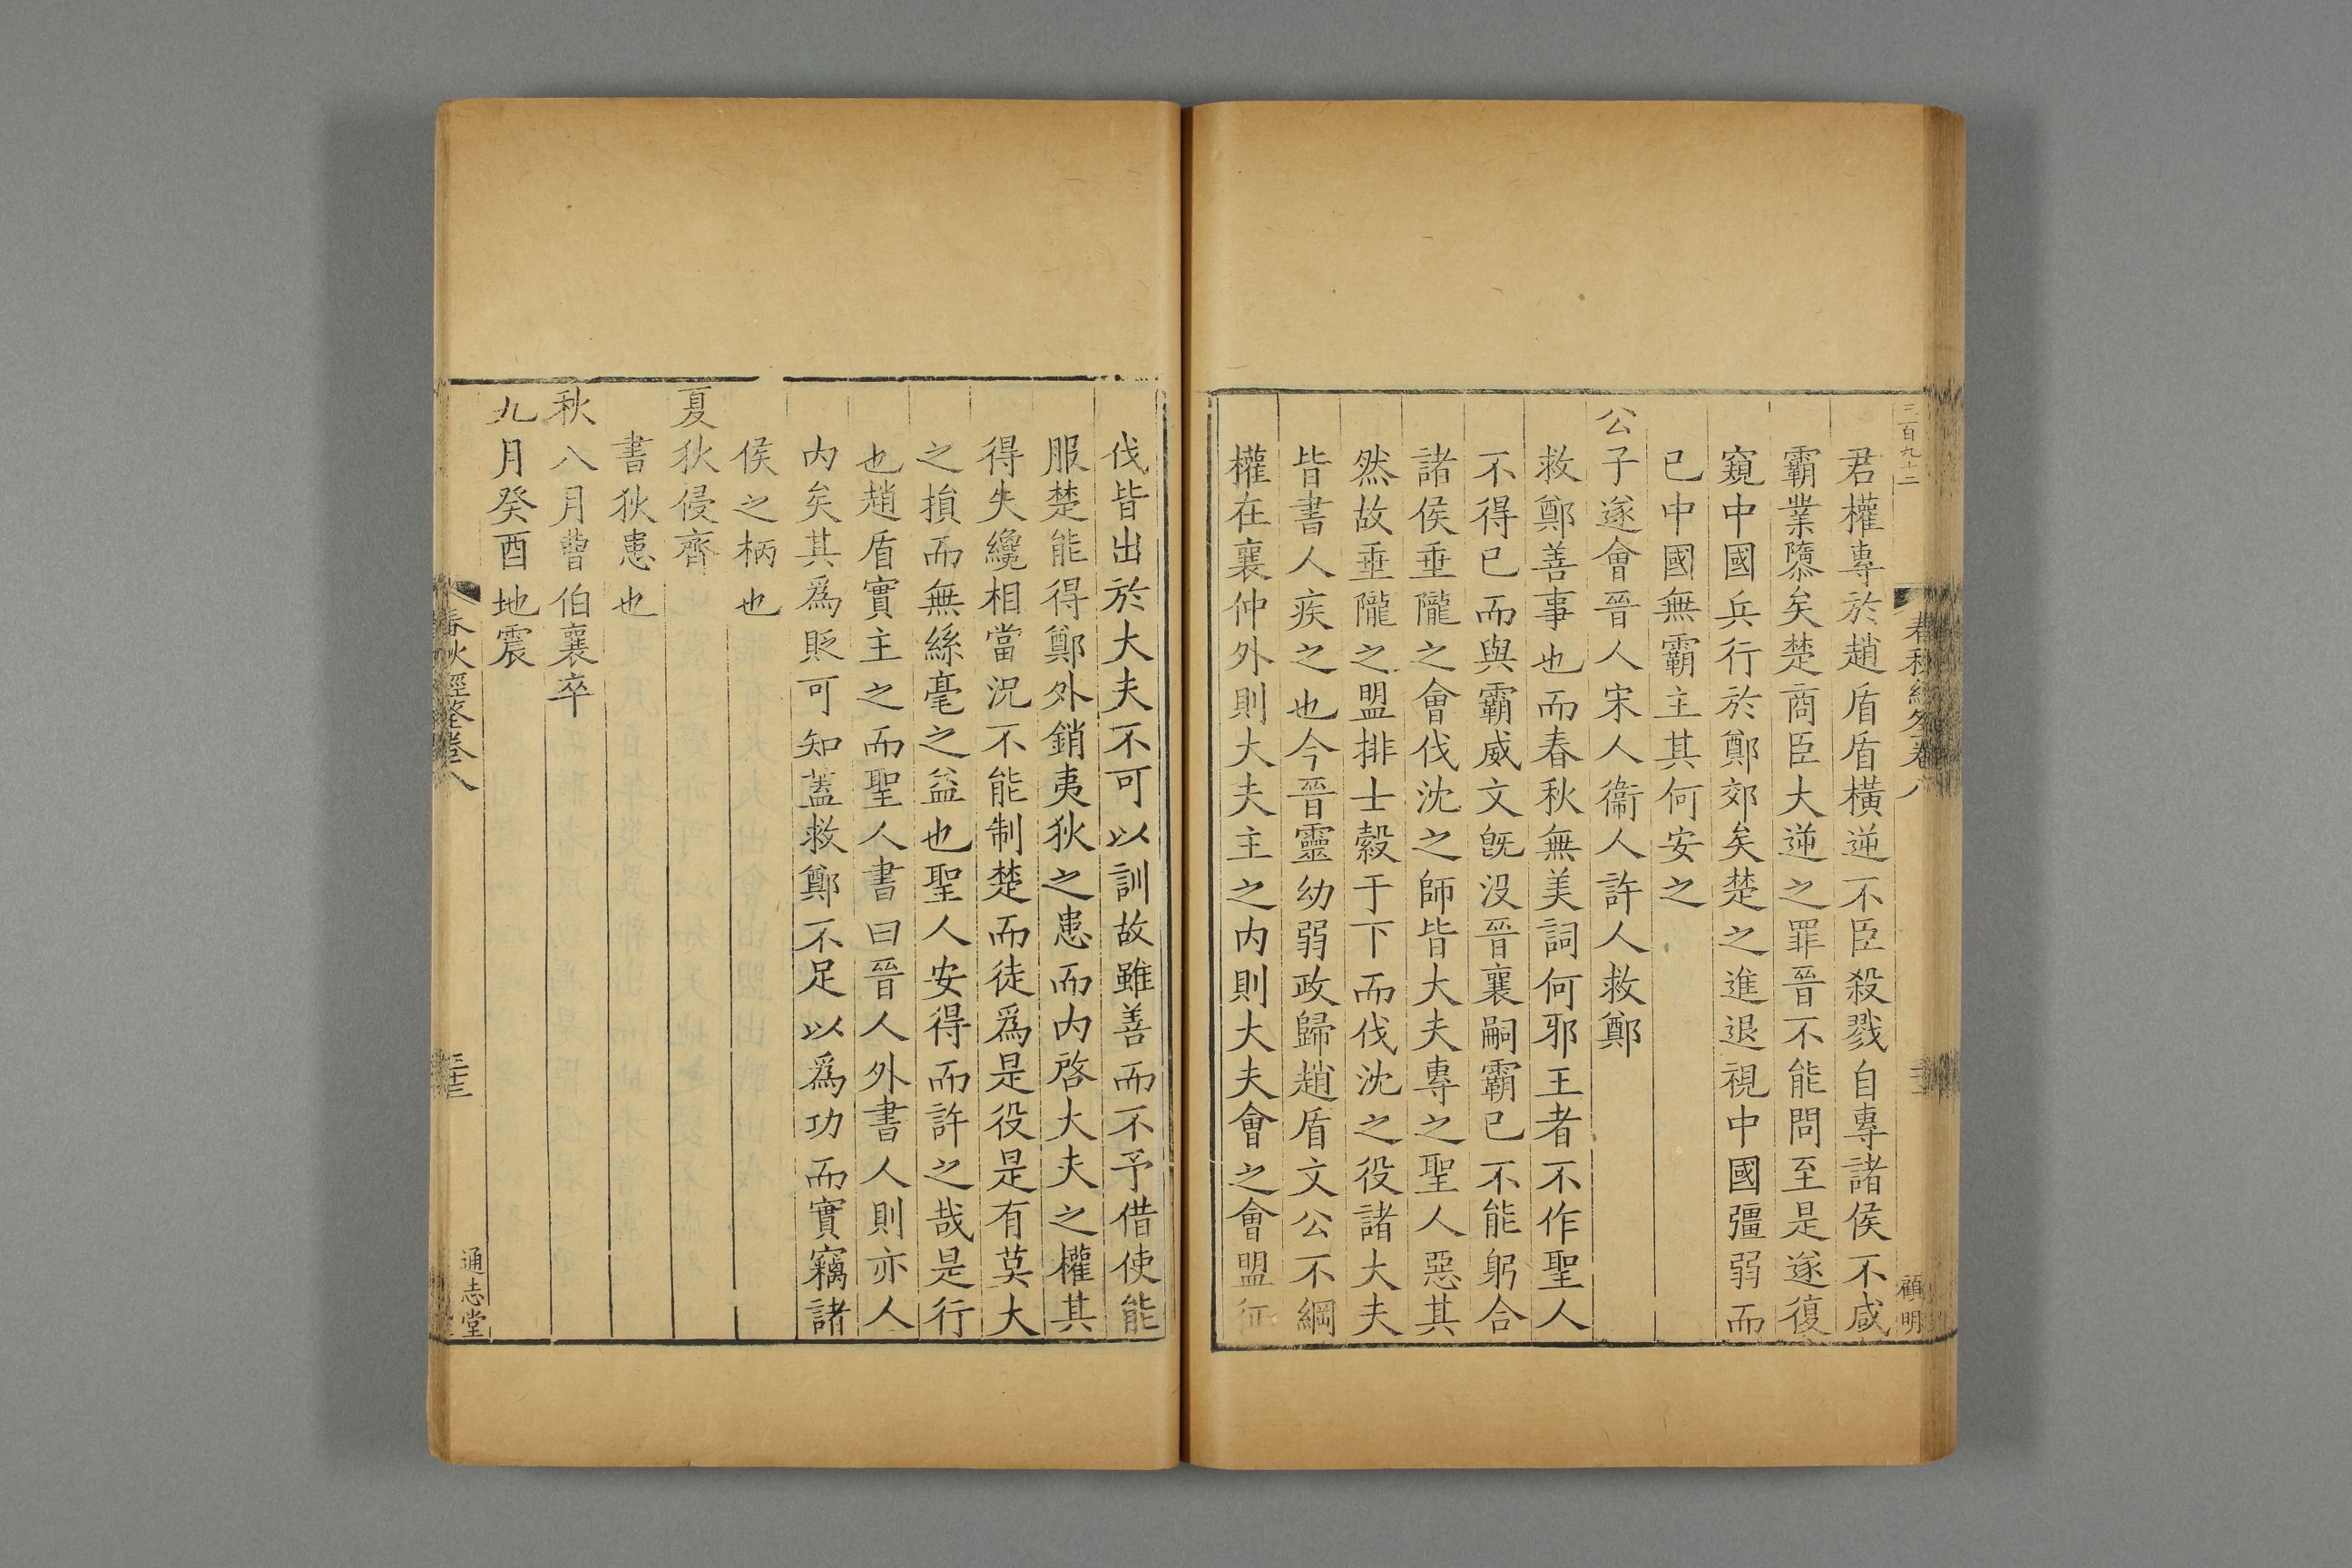 三百九十二
春秋經筌卷八
顧明
君權專於趙盾盾橫逆不臣殺戮自專諸侯不咸
霸業隳矣楚商臣大逆之罪晉不能問至是遂復
窺中國兵行於鄭郊矣楚之進退視中國彊弱而
已中國無霸主其何安之
公子遂會晉人宋人衞人許人救鄭
救鄭善事也而春秋無美詞何邪王者不作聖人
不得已而與霸威文旣没晉襄嗣霸已不能躬合
諸侯垂隴之會伐沈之師皆大夫專之聖人惡其
然故垂隴之盟排士縠于下而伐沈之役諸大夫
皆書人疾之也今晉靈幼弱政歸趙盾文公不綱
權在襄仲外則大夫主之内則大夫會之會盟征
伐皆出於大夫不可以訓故雖善而不予借使能
服楚能得鄭外銷夷狄之患而内啓大夫之權其
得失纔相當況不能制楚而徒爲是役是有莫大
之損而無絲毫之益也聖人安得而許之哉是行
也趙盾實主之而聖人書曰晉人外書人則亦人
内矣其爲貶可知蓋救鄭不足以爲功而實竊諸
侯之柄也
夏狄侵齊
書狄患也
秋八月曹伯襄卒
九月癸酉地震
春秋經筌卷八
通志堂